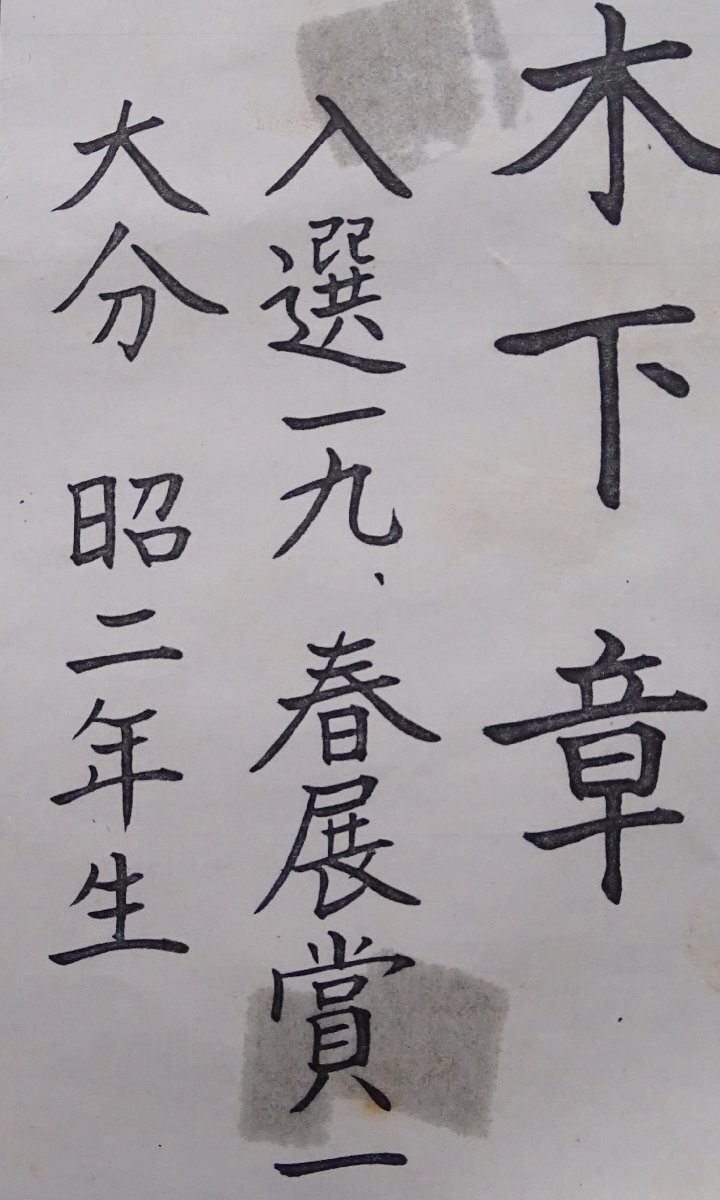 木下 章
入選一九、春展賞一
大分 昭二年生